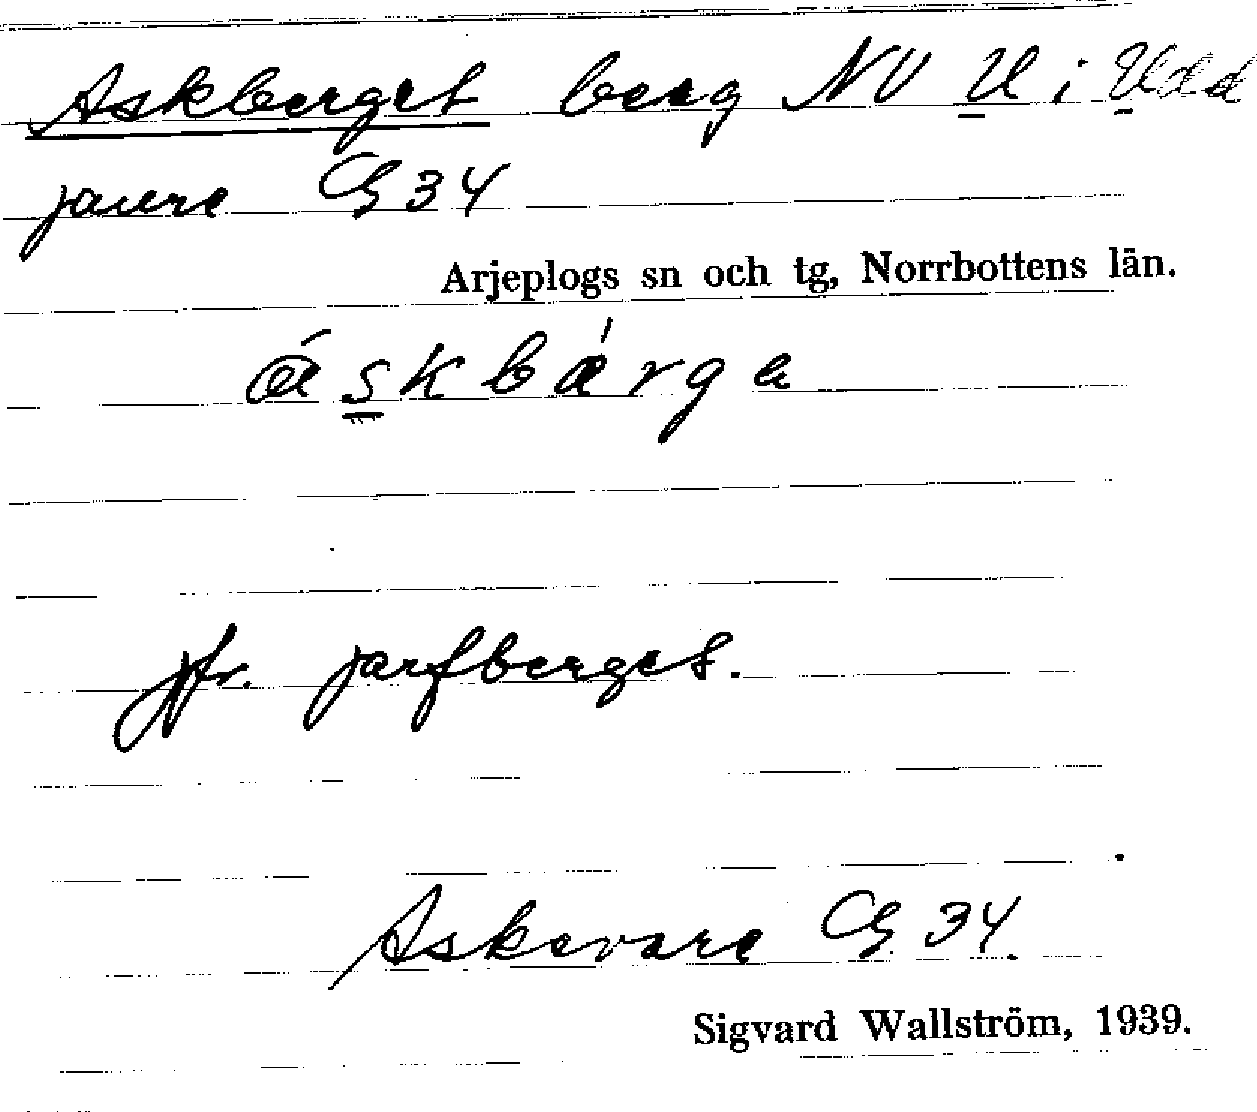 Askberget berg NV U i Udd
jaure G 34
Arjeplogs sn och tg, Norrbottens län.
áskbárge
jfr. jarfberget.
Askavare G 34.
Sigvard Wallström, 1939.